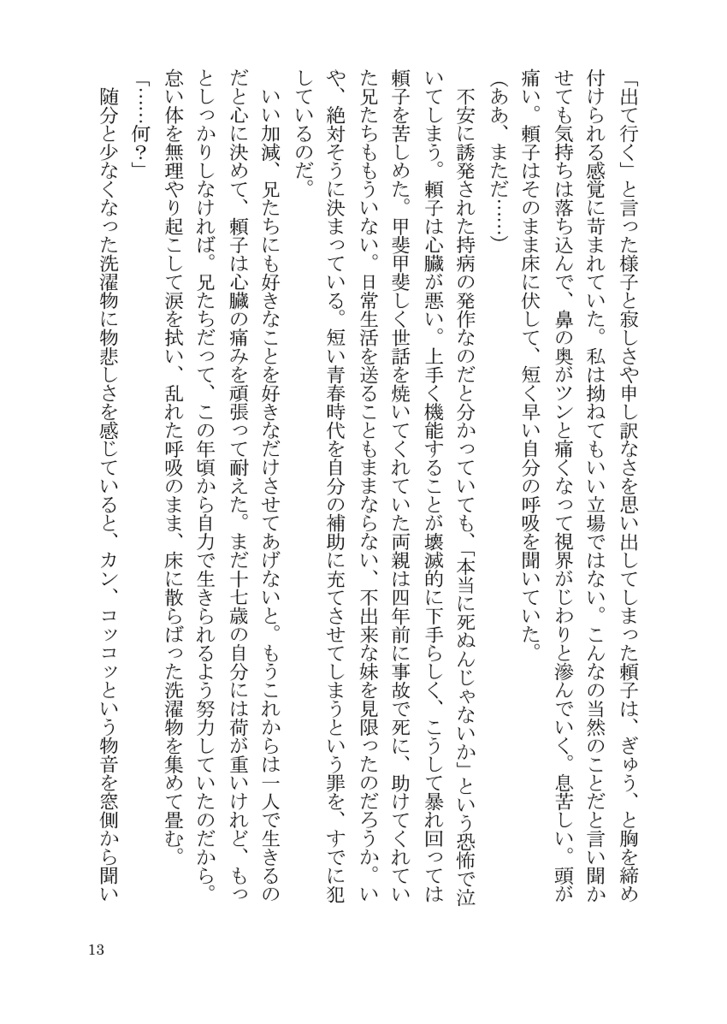 「出て行く」と言った様子と寂しさや申し訳なさを思い出してしまった頼子は、ぎゅう、と胸を締め
付けられる感覚に苛まれていた。私は拗ねてもいい立場ではない。こんなの当然のことだと言い聞か
せても気持ちは落ち込んで、鼻の奥がツンと痛くなって視界がじわりと滲んでいく。息苦しい。頭が
痛い。頼子はそのまま床に伏して、短く早い自分の呼吸を聞いていた。
（ああ、まただ……）
不安に誘発された持病の発作なのだと分かっていても、「本当に死ぬんじゃないか」という恐怖で泣
いてしまう。頼子は心臓が悪い。上手く機能することが壊滅的に下手らしく、こうして暴れ回っては
頼子を苦しめた。甲斐甲斐しく世話を焼いてくれていた両親は四年前に事故で死に、助けてくれてい
た兄たちももういない。日常生活を送ることもままならない、不出来な妹を見限ったのだろうか。い
や、絶対そうに決まっている。短い青春時代を自分の補助に充てさせてしまうという罪を、すでに犯
しているのだ。
いい加減、兄たちにも好きなことを好きなだけさせてあげないと。もうこれからは一人で生きるの
だと心に決めて、頼子は心臓の痛みを頑張って耐えた。まだ十七歳の自分には荷が重いけれど、もっ
としっかりしなければ。兄たちだって、この年頃から自力で生きられるよう努力していたのだから。
怠い体を無理やり起こして涙を拭い、乱れた呼吸のまま、床に散らばった洗濯物を集めて畳む。
「……何？」
随分と少なくなった洗濯物に物悲しさを感じていると、カン、コッコッという物音を窓側から聞い
13